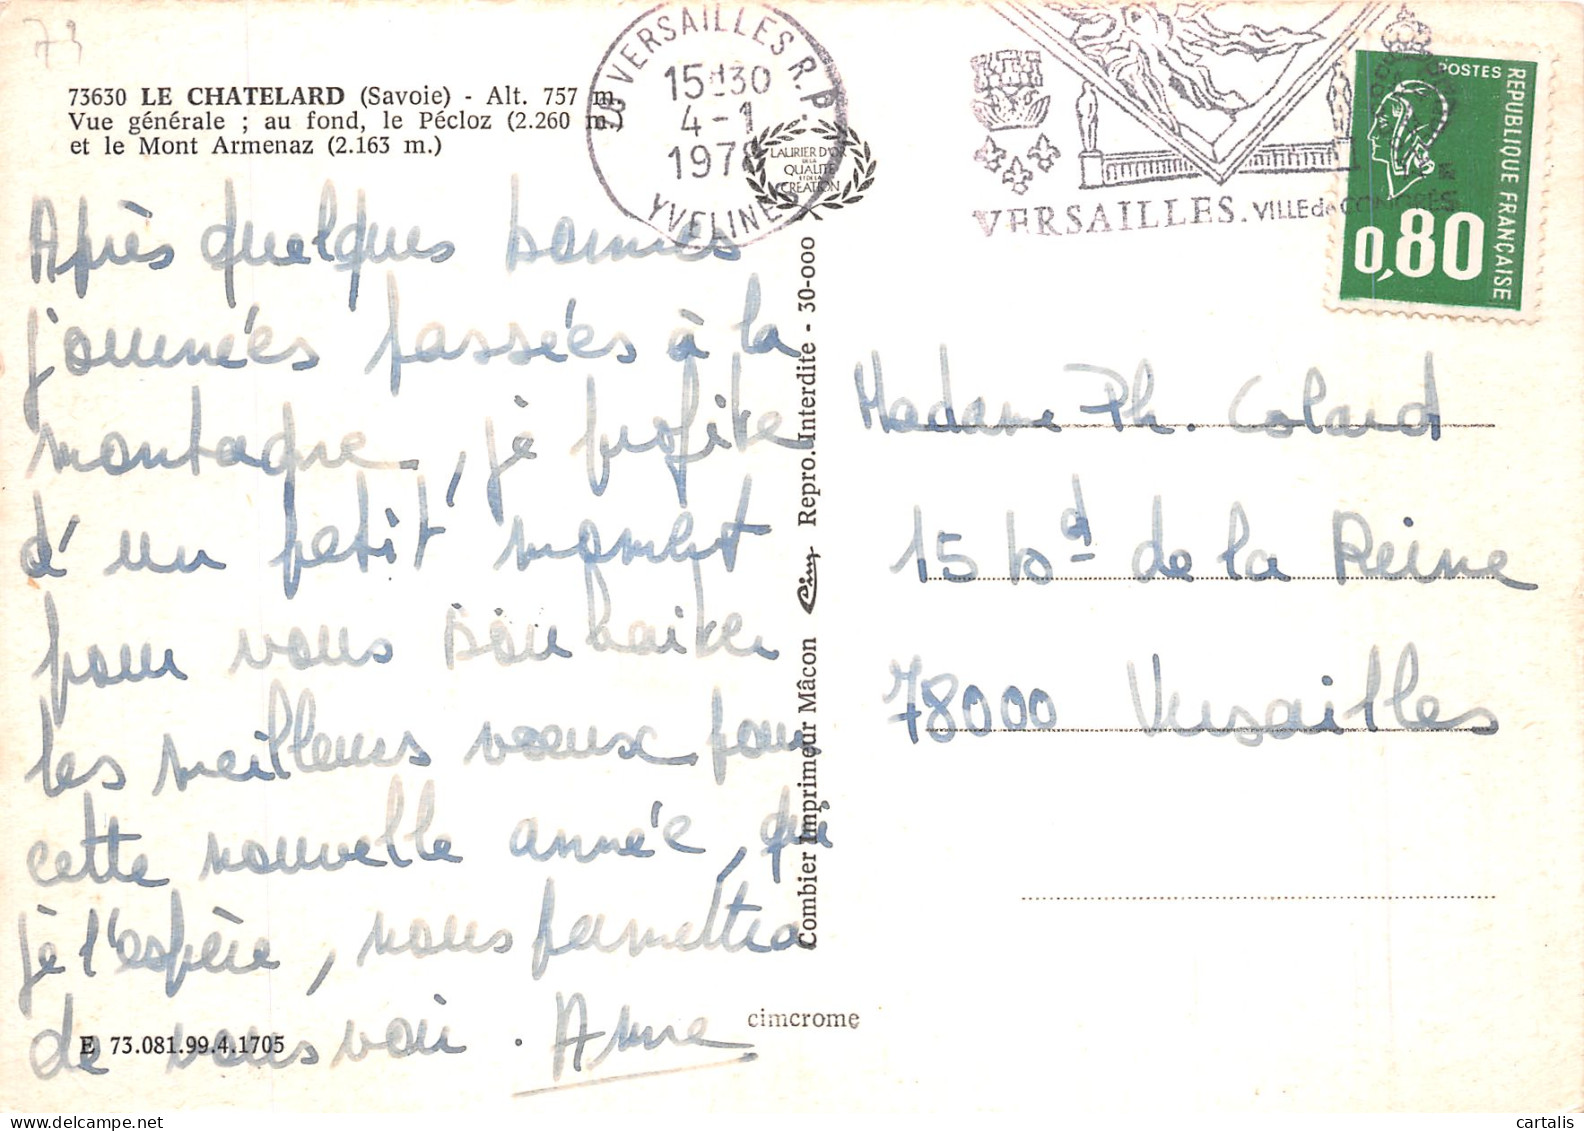 73
73630 LE CHATELARD (Savoie) - Alt. 757 m.
Vue générale ; au fond, le Pécloz (2.260 m.)
et le Mont Armenaz (2.163 m.)
78 VERSAILLES R.P.
15H30
4-1
1978
YVELINES
LAURIER D'OR
DE LA
QUALITÉ
ET DE LA
CRÉATION
VERSAILLES. VILLE de CONGRÈS
POSTES
REPUBLIQUE FRANÇAISE
0,80
Après quelques bonnes
journées passées à la
montagne, je profite
d'un petit moment
pour vous souhaiter
les meilleurs voeux pour
cette nouvelle année, qui
je l'espère, nous permettra
de vous voir. Anne
Madame Ph. Colard
15 bd de la Reine
78000 Versailles
Combier Imprimeur Mâcon Cim Repro. Interdite - 30-000
E 73.081.99.4.1705
cimcrome
cartalis